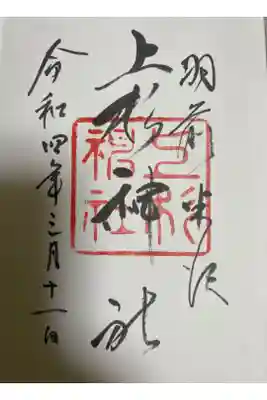 羽前米沢
上杉神社
上杉神社
令和四年三月十一日